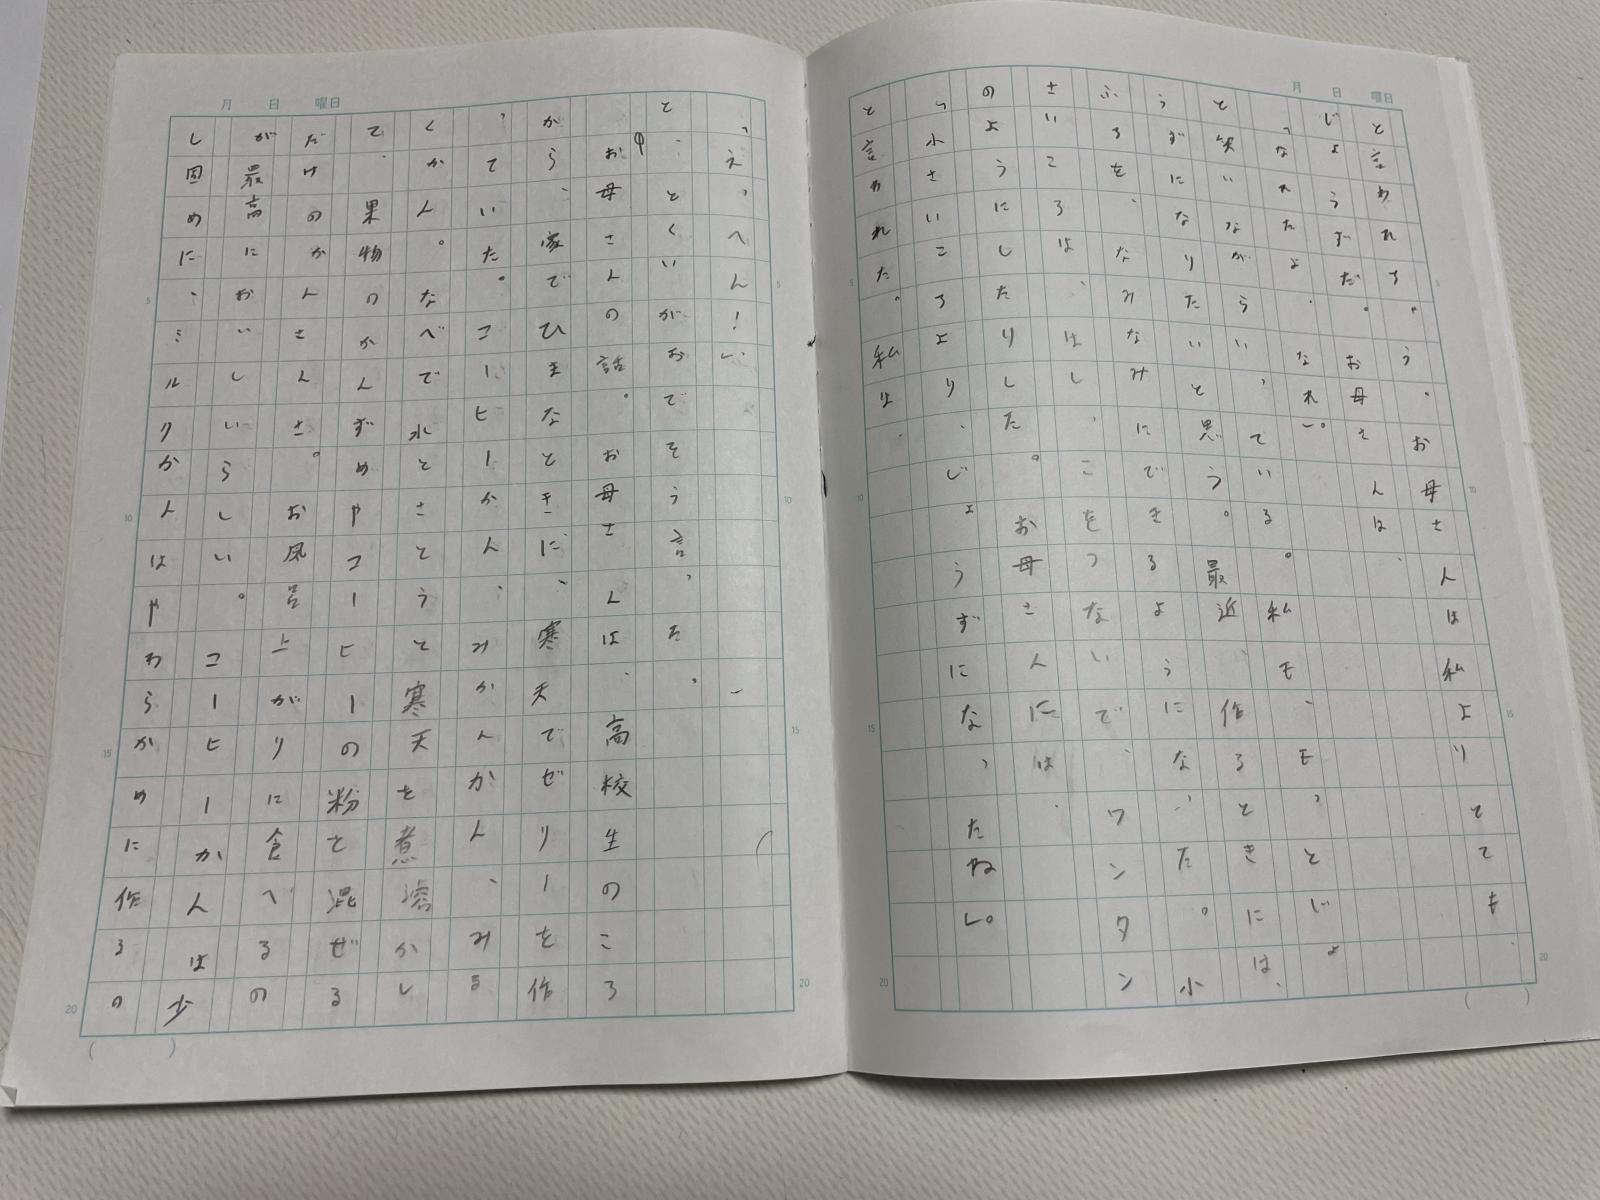 月 日 曜日
と言われちゃう。お母さんは私よりとても
じょうずだ。お母さんは、
「なれたよ、なれ」。
と笑いながらいっている。私も、もっとじょ
うずになりたいと思う。最近、作るときには、
ふちを、なみなみにできるようになった。小
さいころは、はしっこをつないで、ワンタン
のようにしたりした。お母さんには、
「小さいころより、じょうずになったね」。
と言われた。私は、
月 日 曜日
「えっへん!」
と、とくいがおでそう言った。
お母さんの話。お母さんは、高校生のころ
から、家でひまなときに、寒天でゼリーを作
っていた。コーヒーかん、みかんかん、みる
くかん。なべで水とさとうと寒天を煮溶かし
て、果物のかんずめやコーヒーの粉を混ぜる
だけのかんさんさ。お風呂上がりに食べるの
が最高においしいらしい。コーヒーかんは少
し固めに、ミルクかんはやわらかめに作るの